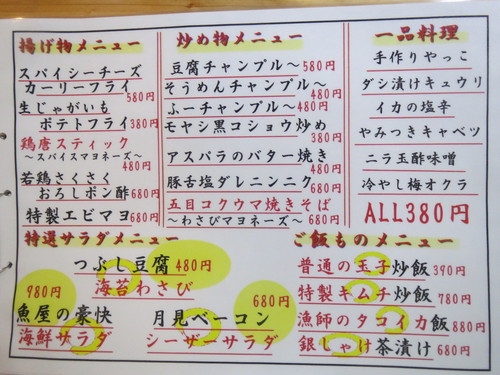 揚げ物メニュー
スパイシーチーズ
カーリーフライ
580円
生じゃがいも
ポテトフライ 380円
鶏唐スティック
～スパイスマヨネーズ～ 480円
若鶏さくさく
おろしポン酢 680円
特製エビマヨ 680円
炒め物メニュー
豆腐チャンプル～ 580円
そうめんチャンプル～ 480円
ふーチャンプル～ 480円
モヤシ黒コショウ炒め 380円
アスパラのバター焼き 480円
豚舌塩ダレニンニク 680円
五目コクウマ焼きそば
～わさびマヨネーズ～ 680円
一品料理
手作りやっこ
ダシ漬けキュウリ
イカの塩辛
やみつきキャベツ
ニラ玉酢味噌
冷やし梅オクラ
ALL380円
特選サラダメニュー
つぶし豆腐 480円
海苔わさび
980円
魚屋の豪快
海鮮サラダ
680円
月見ベーコン
シーザーサラダ
ご飯ものメニュー
普通の玉子炒飯 390円
特製キムチ炒飯 780円
漁師のタコイカ飯 880円
銀しゃけ茶漬け 680円